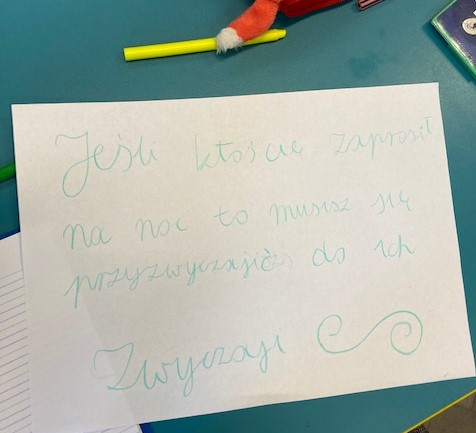 Jeśli ktościę zaprosił
na noc to musisz się
przyzwyczajić do ich
Zwyczaji